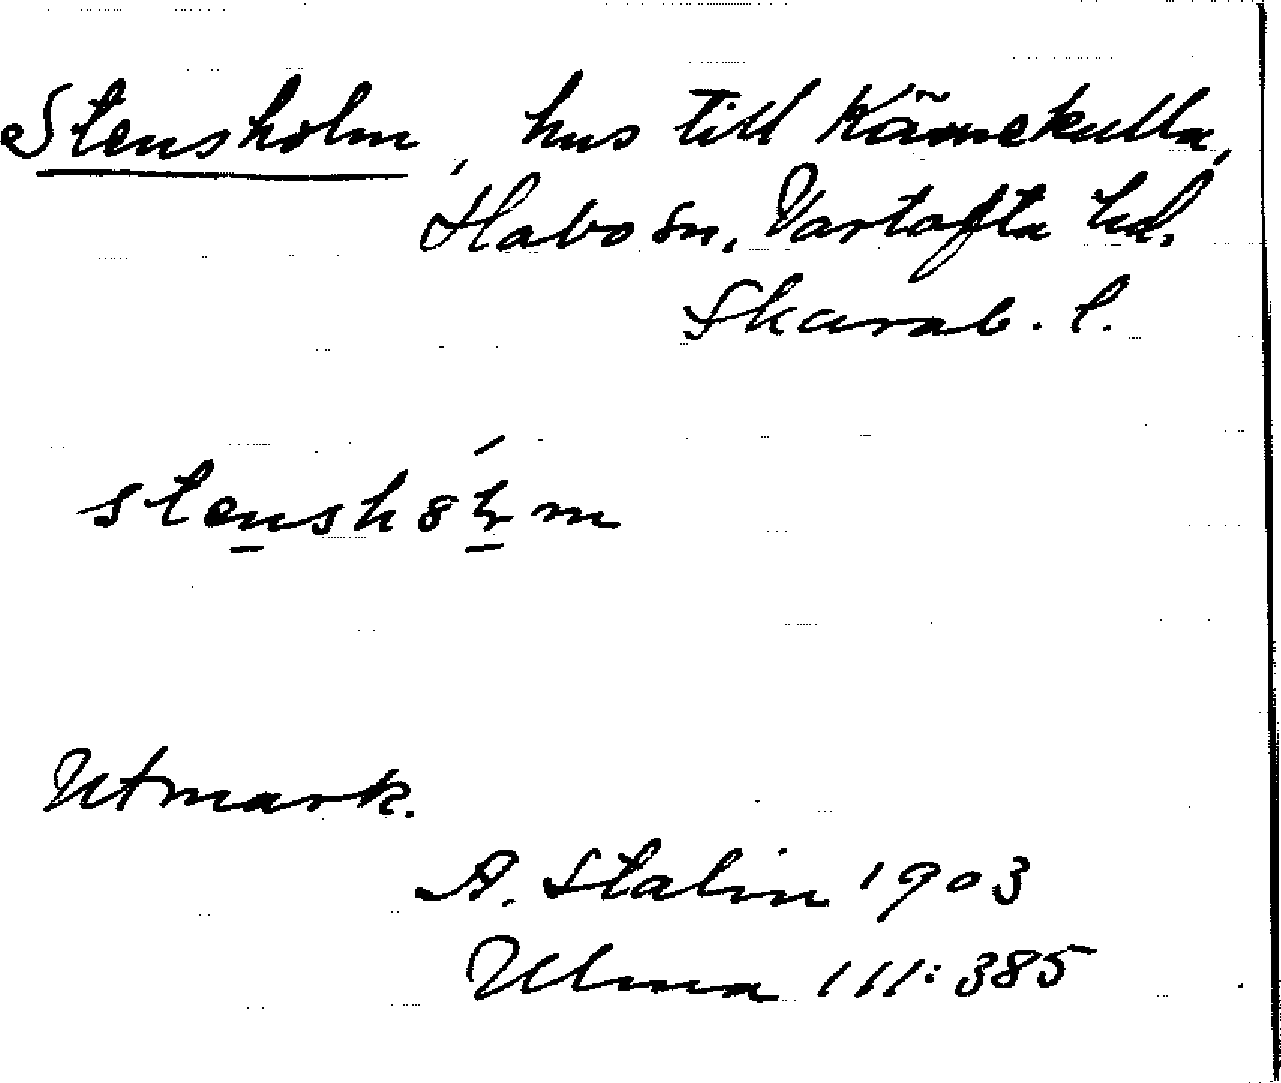 Stensholm, hus till Kärnekulla,
Habo sn, Vartofta hd.
Skarab. l.
stensh8lm
Utmark.
A. Stalin 1903
Ulma 111:385